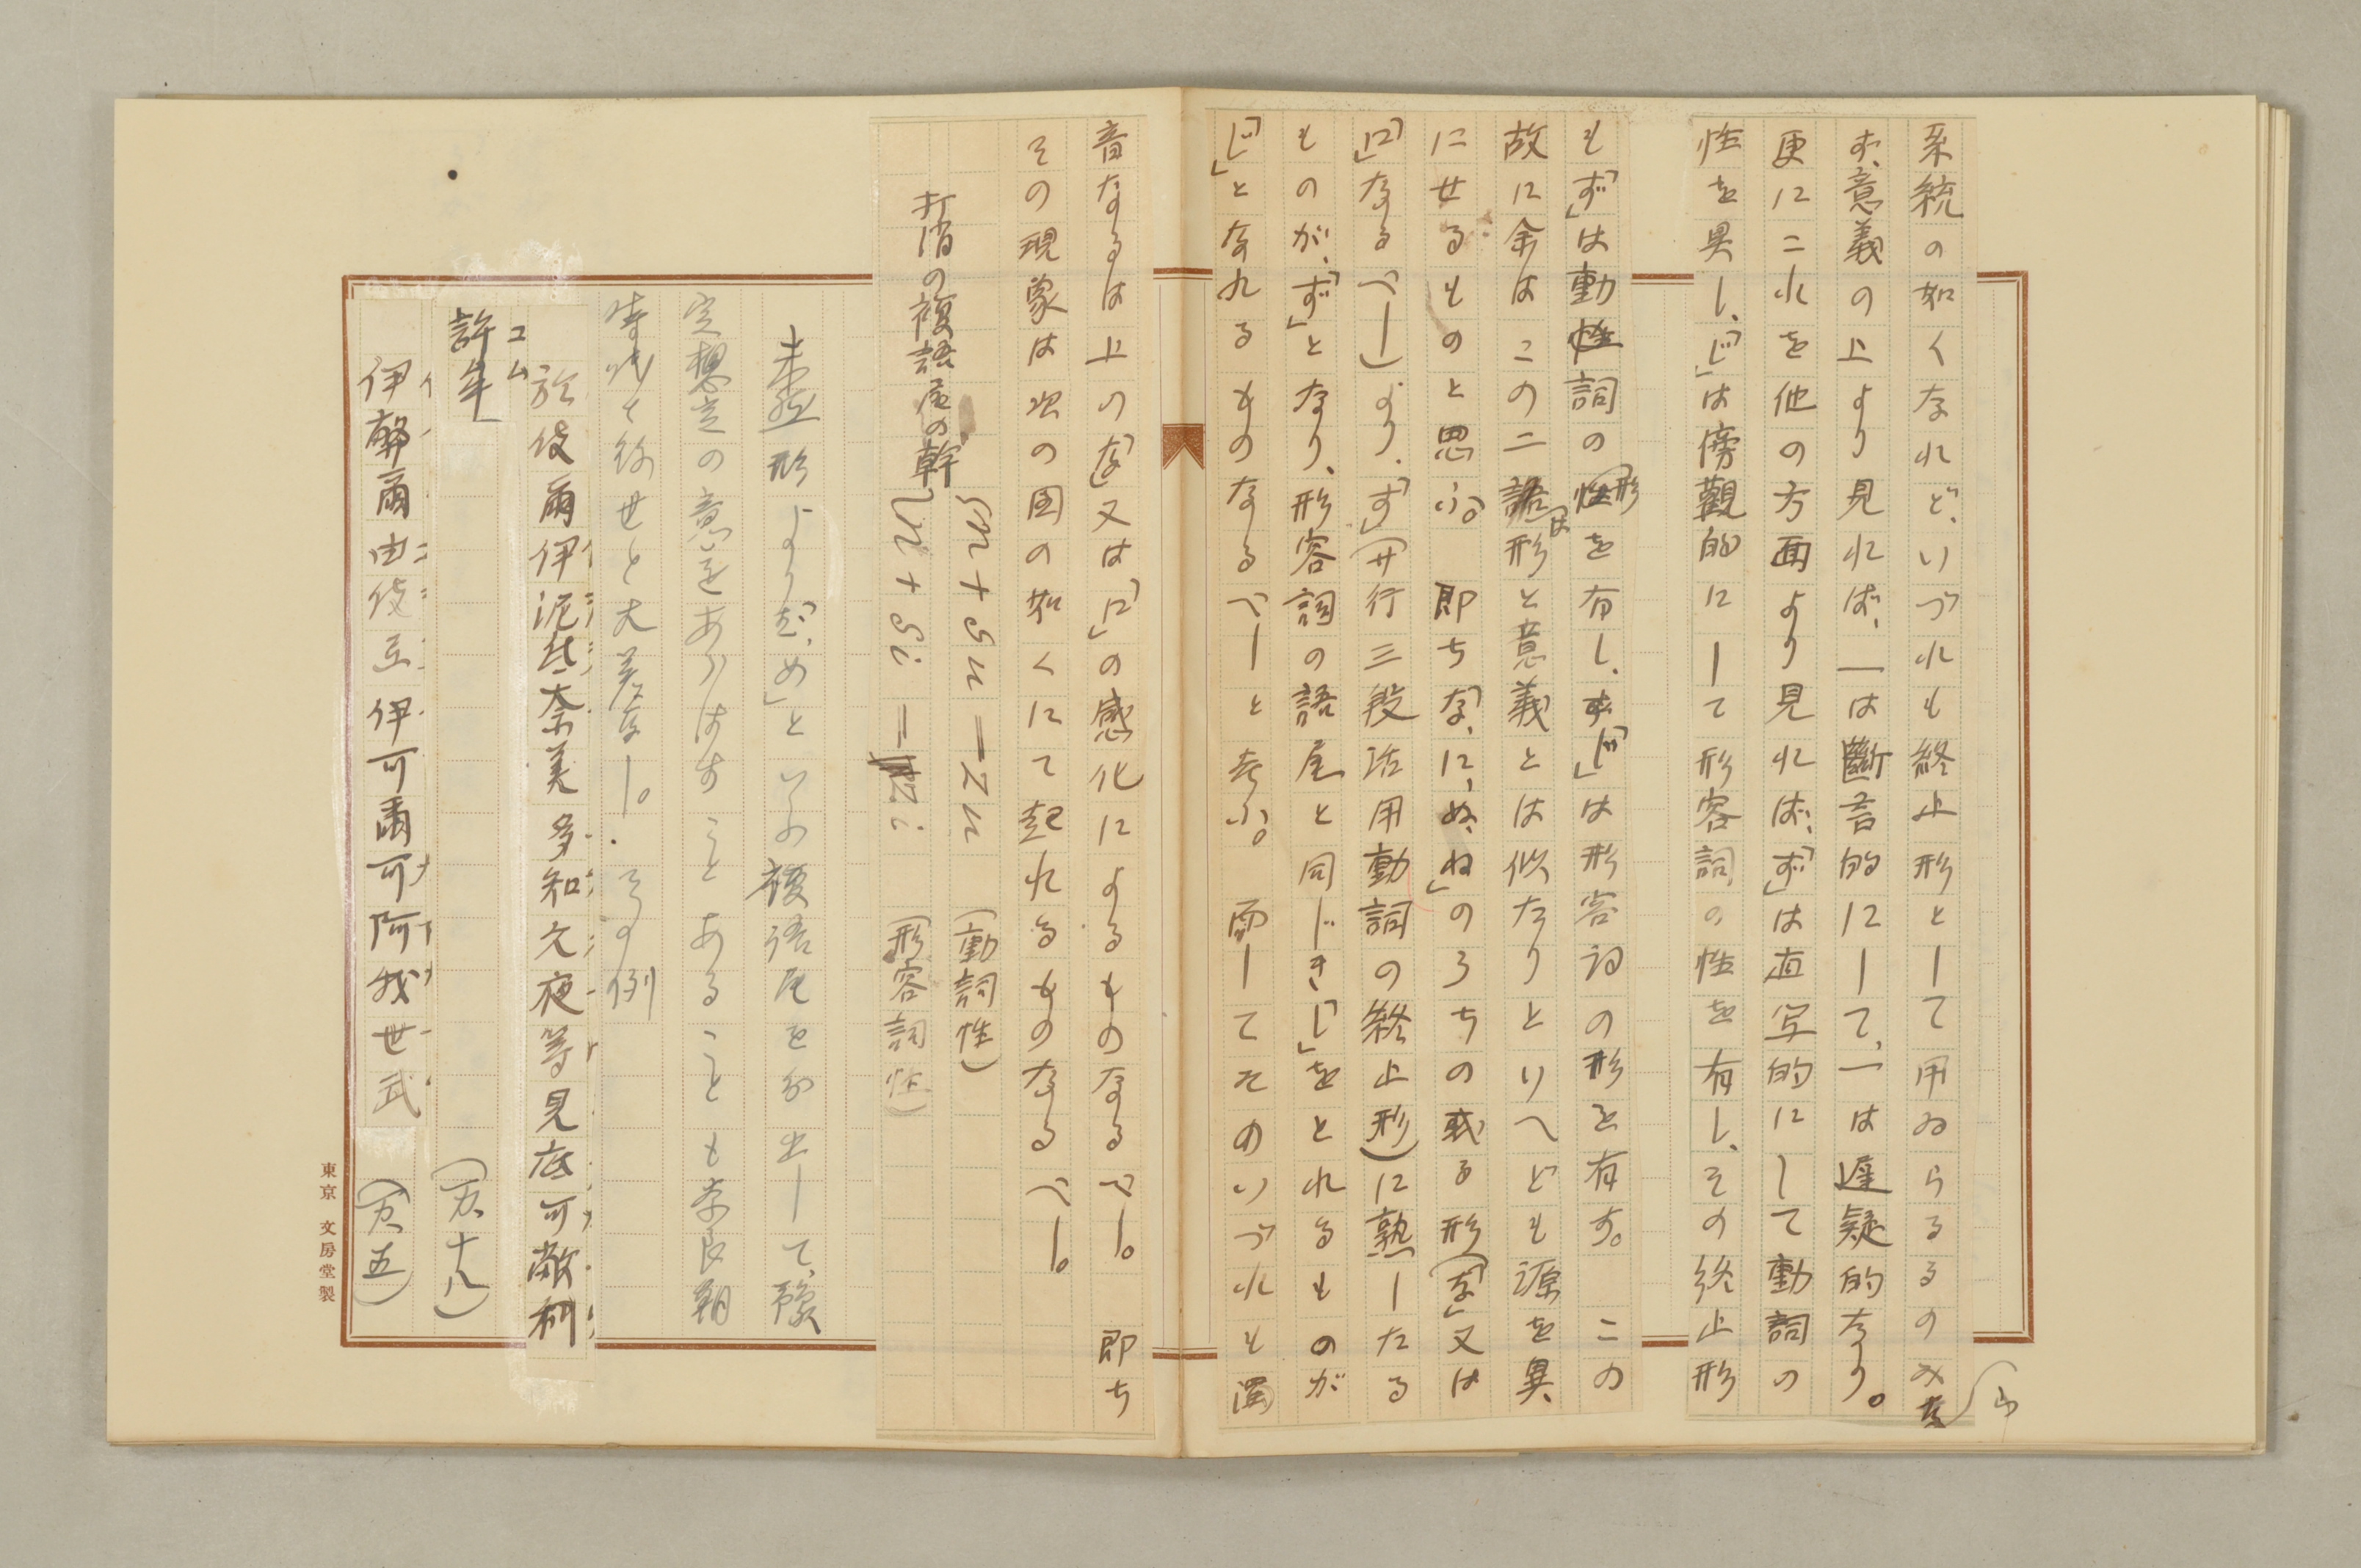 系統の如くなれど、いづれも終止形として用ゐらるるのみな
ず、意義の上より見れば、一は斷言的にして、一は遅疑的なり。
更にこれを他の方面より見れば、「ず」は直写的にして動詞の
性を具し、「じ」は傍觀的にして形容詞の性を有し、その終止形
も「ず」は動詞の形を有し、「じ」は形容詞の形を有す。 この
故に余はこの二語は形と意義とは似たりといへども源を異
にせるものと思ふ。 即ち「な、に、ぬ、ね」のうちの或る形(「な」又は
「に」なるべし)より、「す」(サ行三段活用動詞の終止形)に熟したる
ものが、「ず」となり、形容詞の語尾と同じき「し」をとれるものが
「じ」となれるものなるべしと考ふ。 而してそのいづれも濁
音なるは上の「な」又は「に」の感化によるものなるべし。 即ち
その現象は次の図の如くにて起れるものなるべし。
打消の複語尾の幹
n + su = zu (動詞性)
n + si = zi (形容詞性)
未然形より「な、め」といふ複語尾を分出して、豫
定想定の意をあらはすことあることも奈良朝
時代と後世と大差なし。 その例
於伎爾伊泥[]奈美多知夊夜等見底可敝利
コム
許牟 (万十八)
伊麻爾由伎弖伊可爾可阿我世武 (万五)
東京 文房堂製